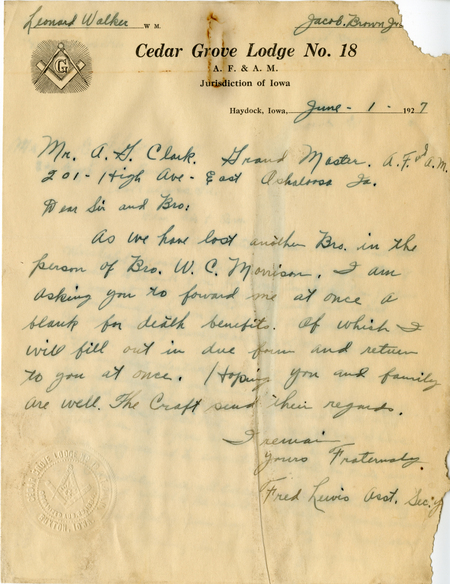 Leonard Walker W. M. Jacob Brown Jr.
G
Cedar Grove Lodge No. 18
A. F. & A. M.
Jurisdiction of Iowa
Haydock, Iowa, June - 1 - 1927
Mr. A. G. Clark. Grand Master. A. F. & A. M.
201 - High Ave - East Oskaloosa Ia.
Dear Sir and Bro:
As we have lost another Bro. in the
person of Bro. W. C. Morrison. I am
asking you to forward me at once a
blank for death benefits. Of which I
will fill out in due form and return
to you at once. Hoping you and family
are well. The Craft send their regards.
I remain
Yours Fraternaly.
Fred Lewis Asst. Sec'y